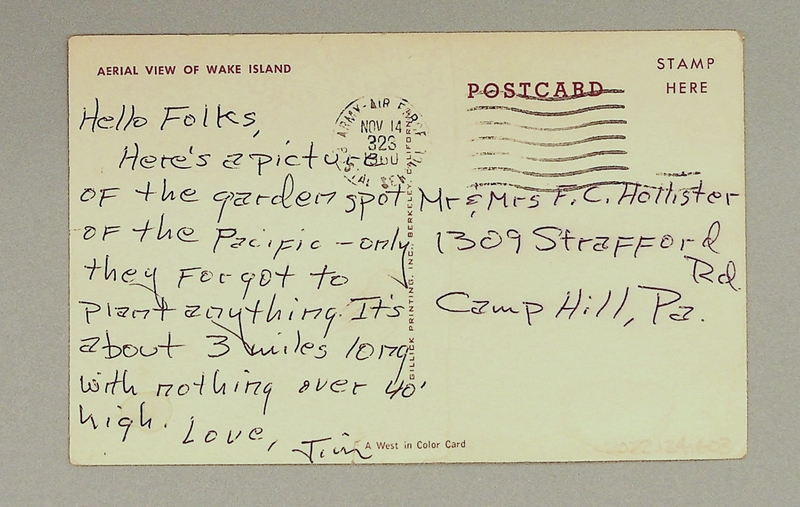 AERIAL VIEW OF WAKE ISLAND
Hello Folks,
Here's a picture
of the garden spot
of the Pacific - only
they forgot to
plant anything. It's
about 3 miles long
with nothing over 40'
high.
Love,
Jim
POSTCARD
STAMP
HERE
ARMY-AIR FORCE
NOV 14
323
Mr & Mrs F. C. Hollister
1309 Strafford
Rd.
Camp Hill, Pa.
GILLICK PRINTING, INC., BERKELEY, CALIFORNIA
A West in Color Card